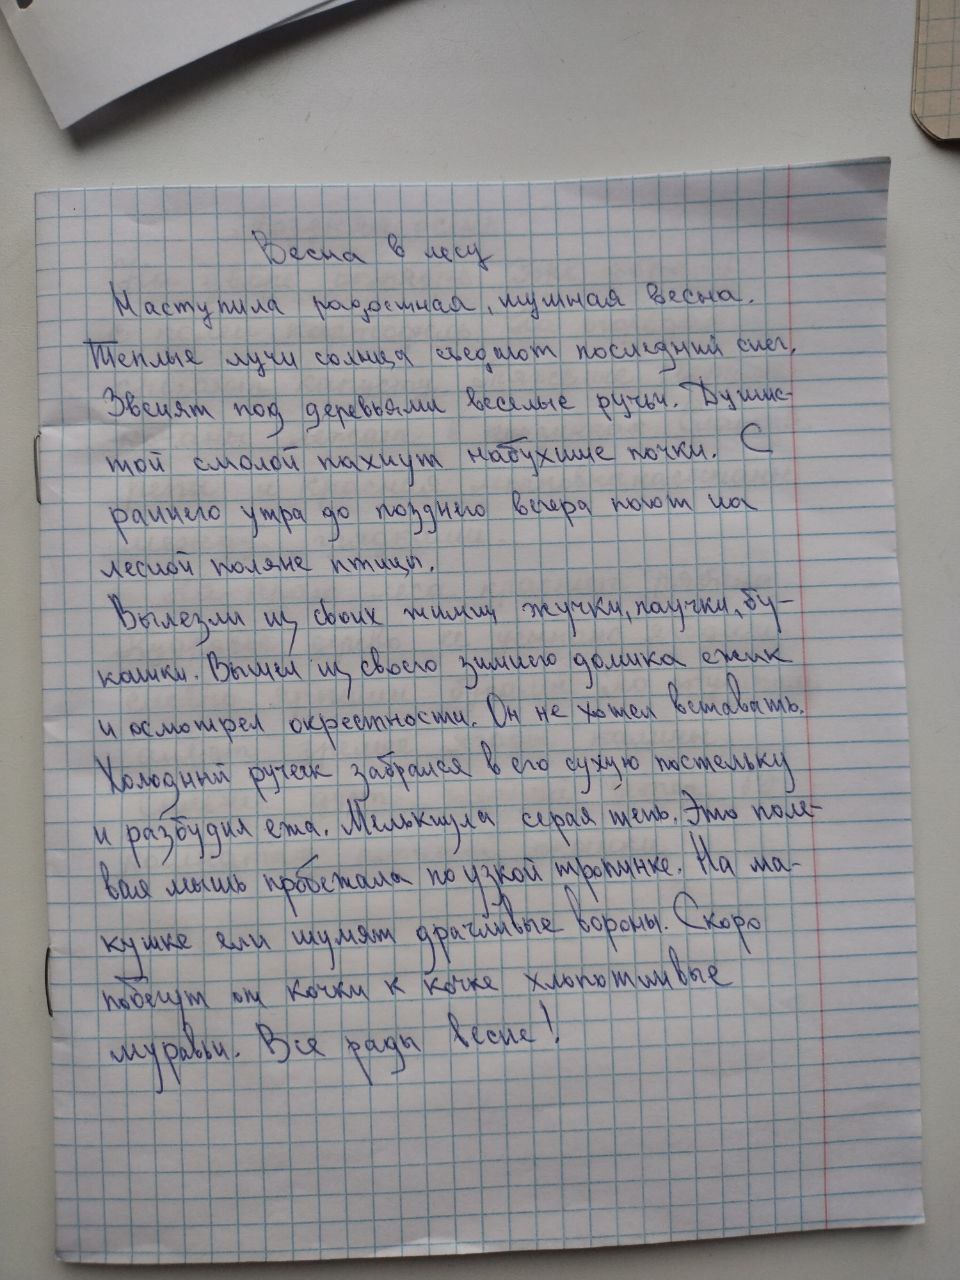 Весна в лесу
Наступила радостная, шумная весна.
Теплые лучи солнца съедают последний снег.
Звенят под деревьями веселые ручьи. Душис-
той смолой пахнут набухшие почки. С
раннего утра до позднего вечера поют на
лесной поляне птицы.
Вылезли из своих жилищ жучки, паучки, бу-
кашки. Вышел из своего зимнего домика ежик
и осмотрел окрестности. Он не хотел вставать.
Холодный ручеек забрался в его сухую постельку
и разбудил ежа. Мелькнула серая тень. Это поле-
вая мышь пробежала по узкой тропинке. На ма-
кушке ели шумят драчливые вороны. Скоро
побегут от кочки к кочке хлопотливые
муравьи. Все рады весне!